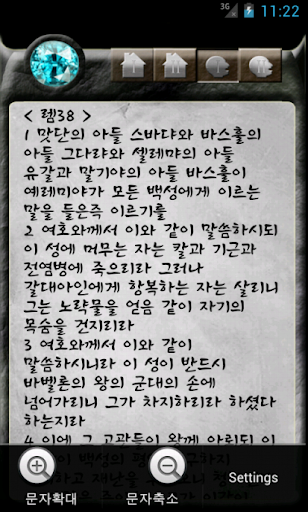 3G 11:22
< 렘38 >
1 맛단의 아들 스바댜와 바스훌의
아들 그다랴와 셀레먀의 아들
유갈과 말기야의 아들 바스훌이
예레미야가 모든 백성에게 이르는
말을 들은즉 이르기를
2 여호와께서 이와 같이 말씀하시되
이 성에 머무는 자는 칼과 기근과
전염병에 죽으리라 그러나
갈대아인에게 항복하는 자는 살리니
그는 노략물을 얻음 같이 자기의
목숨을 건지리라
3 여호와께서 이와 같이
말씀하시니라 이 성이 반드시
바벨론의 왕의 군대의 손에
넘어가리니 그가 차지하리라 하셨다
하는지라
4 이에 그 고관들이 왕께 아뢰되 이
백성의
재난을
문자확대 문자축소 Settings